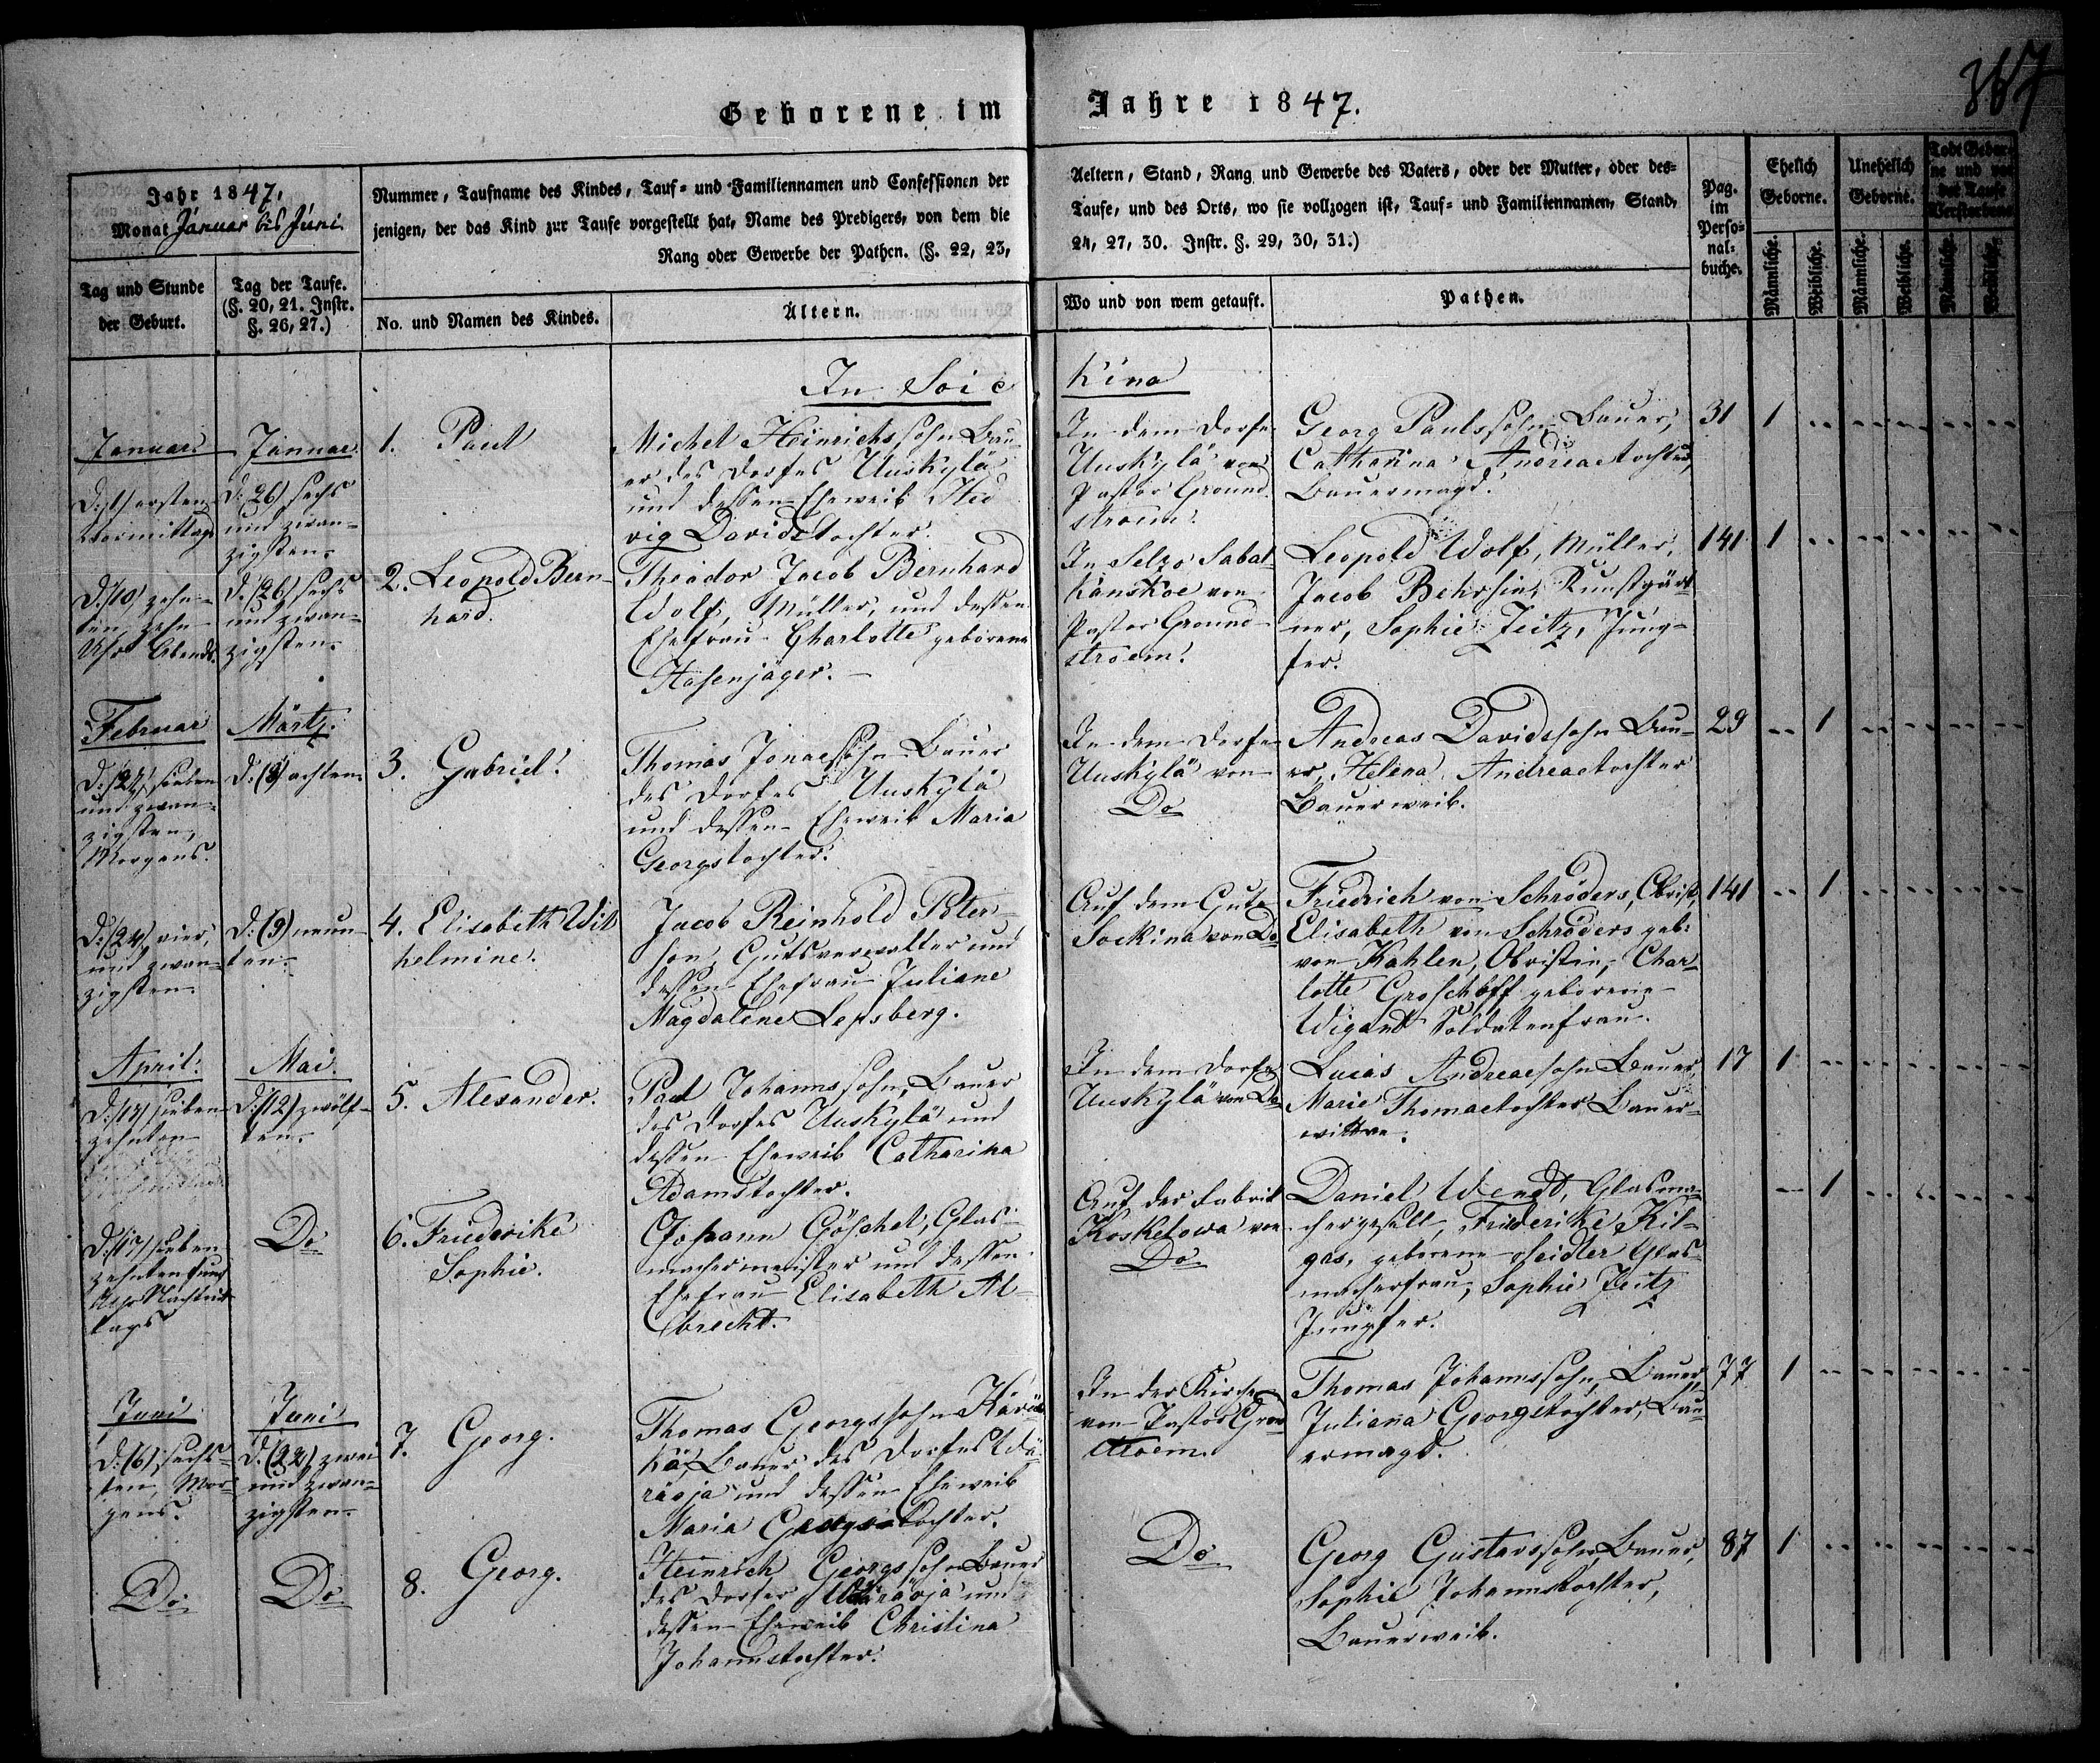 387
Geborene im Jahre 1847.
Jahr 1847,
Monat Januar bis Juni.
Tag und Stunde
der Geburt.
Tag der Taufe.
(§. 20, 21. Instr.
§. 26, 27.)
Nummer, Taufname des Kindes, Tauf- und Familiennamen und Confessionen der
jenigen, der das Kind zur Taufe vorgestellt hat, Name des Predigers, von dem die
Rang oder Gewerbe der Pathen. (§. 22, 23,
No. und Namen des Kindes.
Altern.
Aeltern, Stand, Rang und Gewerbe des Vaters, oder der Mutter, oder des-
Taufe, und des Orts, wo sie vollzogen ist, Tauf- und Familiennamen, Stand,
24, 27, 30. Instr. §. 29, 30, 31.)
Wo und von wem getauft.
Pathen.
Pag.
im
Perso-
nal-
buche.
Ehelich
Geborne.
Unehelich
Geborne.
Todt Gebor-
ne und vor
der Taufe
Verstorbene
Männliche.
Weibliche.
Männliche.
Weibliche.
Männliche.
Weibliche.
In Soickina
Januar.
D. (1) ersten
Vormittags
Januar
D. (26) sechs
und zwan-
zigsten.
1. Paul
Michel Heinrichssohn Bau-
er des Dorfes Uuskylä
und dessen Eheweib Hed
vig Davidstochter.
In dem Dorfe
Uuskylä von
Pastor Ground
stroem.
Georg Paulssohn Bauer,
Catharina Andreaetochter,
Bauermagd.
31 1
D. (10) zehn-
ten zehn
Uhr Abends.
D. (26) sechs
und zwan-
zigsten.
2. Leopold Bern-
hard.
Theodor Jacob Bernhard
Wolf, Müller, und dessen
Ehefrau Charlotte geborene
Hasenjäger.
In Selzo Sabal
kanskoe von
Pastor Ground-
stroem.
Leopold Wolf, Müller,
Jacob Behrsin, Kunstgärt
ner, Sophie Zeitz, Jung-
fer.
141 1
Februar
D. (27) sieben
und zwan-
zigsten,
Morgens.
Märtz.
D. (8) achten
3. Gabriel.
Thomas Jonaessohn Bauer
des Dorfes Uuskylä
und dessen Eheweib Maria
Georgstochter.
In dem Dorfe
Uuskylä von
Do
Andreas Davidssohn Bau-
er, Helena Andreaetochter
Bauerweib.
29 1
D. (24) vier
und zwan-
zigsten
D. (9) neun-
ten.
4. Elisabeth Wil
helmine.
Jacob Reinhold Peter-
son, Gutsverwalter und
dessen Ehefrau Juliane
Magdalene Lepsberg.
Auf dem Gute
Soikina von Do
Friedrich von Schröders, Obrist,
Elisabeth von Schröders geb:
von Kahlen, Obristin, Char-
lotte Groschoff geborene
Wigand Soldatenfrau.
141 1
April.
D. (17) sieben-
zehnten
Mai.
D. (12) zwölf-
ten.
5. Alexander.
Paul Johannssohn, Bauer
des Dorfes Uuskylä und
dessen Eheweib Catharina
Adamstochter.
In dem Dorfe
Uuskylä von Do
Lucas Andreaesohn Bauer,
Marie Thomaetochter Bauer-
wittwe.
17 1
D. (17) sieben-
zehnten fünf
Uhr Nachmit
tags
Do
6. Friederike
Sophie.
Johann Göschel, Glas-
machermeister und dessen
Ehefrau Elisabeth Al-
brecht.
Auf der Fabrik
Koskelowa von
Do
Daniel Wendt, Glasma-
chergesell, Friederike Kil-
gas, geborene Seidler Glas-
macherfrau, Sophie Zeitz
Jungfer.
1
Juni
D. (6) sechs-
ten, Mor-
gens.
Juni
D. (22) zwei
und zwan-
zigsten.
7. Georg.
Thomas Georgssohn
Bauer des Dorfes
und dessen Eheweib
Maria Georgstochter.
In der Kirche
von Pastor Grou
stroem.
Thomas Johannssohn, Bauer,
Juliana Georgstochter, Bau-
ermagd.
77 1
Do
Do
8. Georg.
Heinrich Georgssohn Bauer
des Dorfes und
dessen Eheweib Christina
Johannstochter.
Do
Georg Gustavssohn, Bauer,
Sophie Johannstochter,
Bauerweib.
87 1